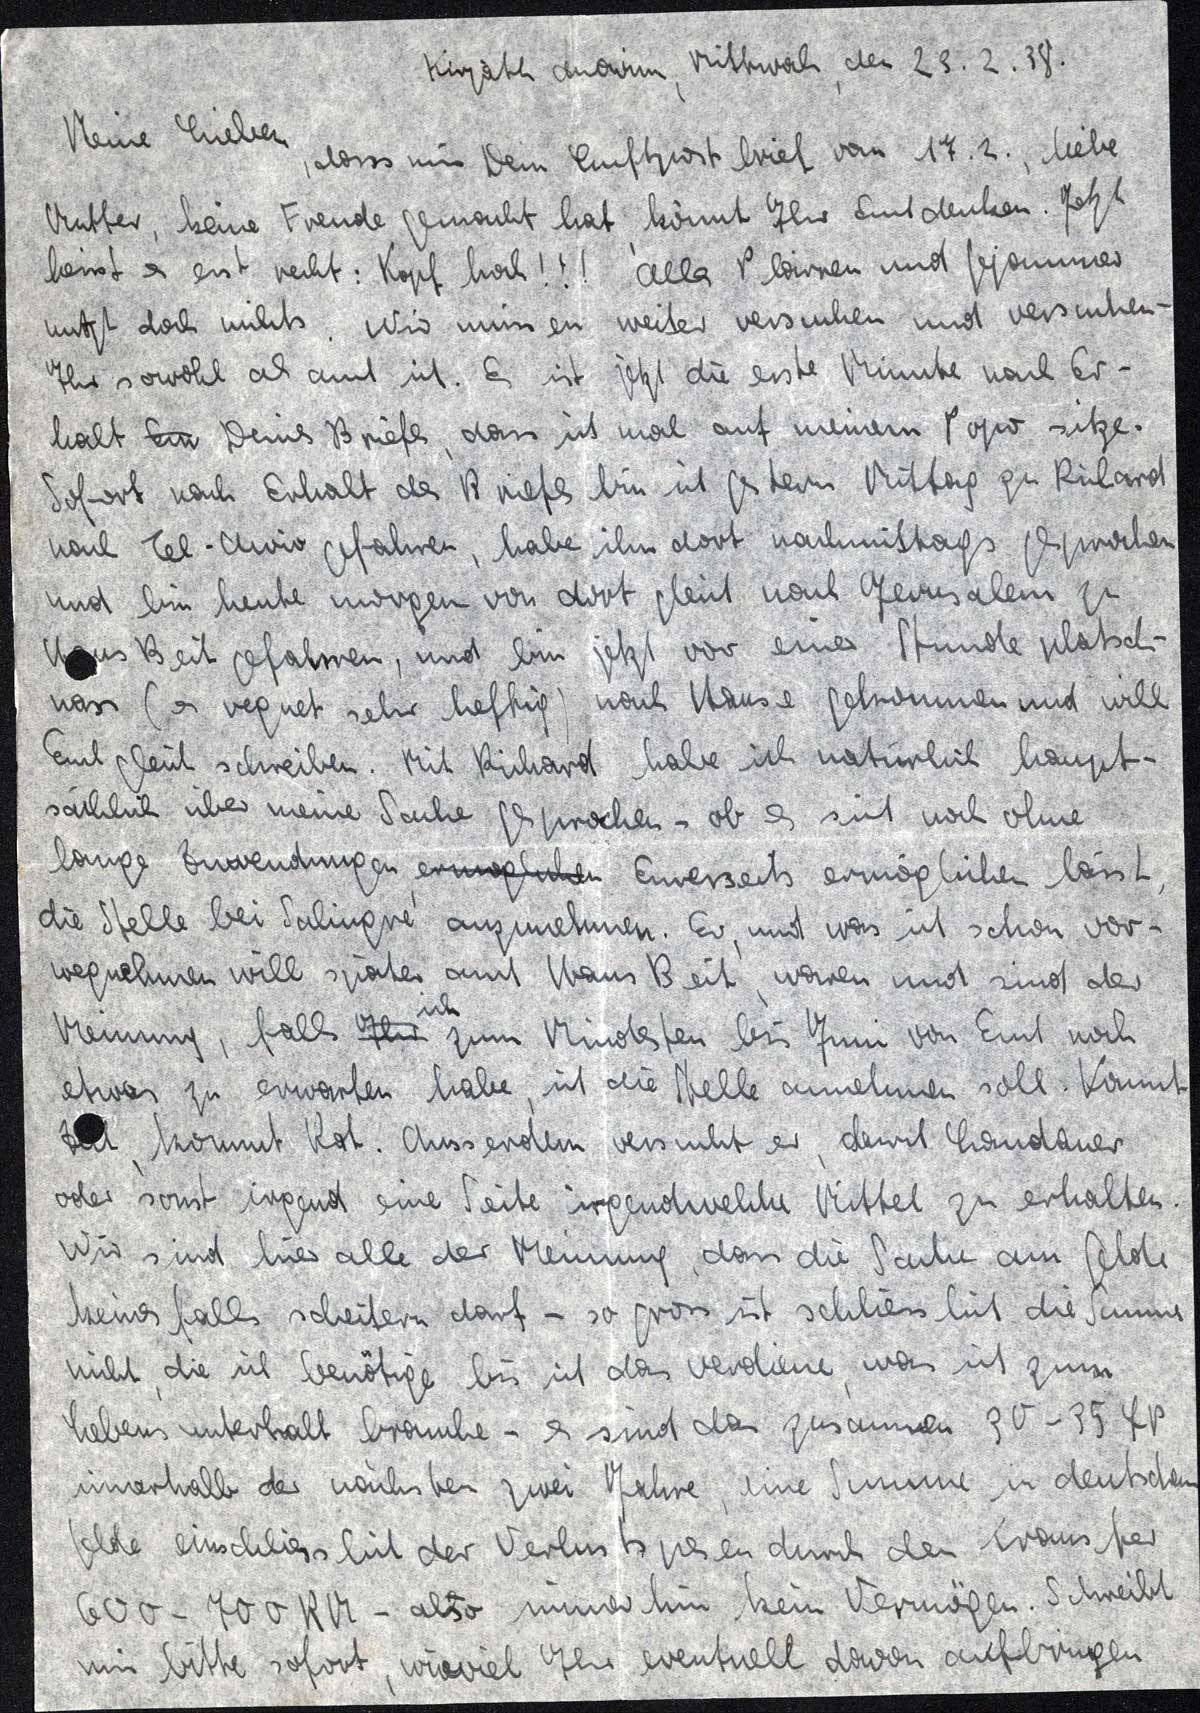 Kirjath Anavim, Mittwoch, den 23.2.38.
Meine Lieben,
dass mir Dein Luftpostbrief vom 17.2., liebe
Mutter, keine Freude gemacht hat, könnt Ihr Euch denken. Jetzt
heisst es erst recht: Kopf hoch!!! Alles Plärren und Gejammer
nutzt doch nichts. Wir müssen weiter versuchen und versuchen -
Ihr sowohl als auch ich. Es ist jetzt die erste Minute nach Er-
halt Deines Briefes, dass ich mal auf meinem Popo sitze.
Sofort nach Erhalt des Briefes bin ich gestern Mittag zu Richard
nach Tel-Awiw gefahren, habe ihn dort nachmittags gesprochen
und bin heute morgen von dort gleich nach Jerusalem zu
Hans Beit gefahren, und bin jetzt vor einer Stunde platsch-
nass (es regnet sehr heftig) nach Hause gekommen und will
Euch gleich schreiben. Mit Richard habe ich natürlich haupt-
sächlich über meine Sache gesprochen - ob es sich noch ohne
lange Zuwendungen ermöglichen Eurerseits ermöglichen lässt,
die Stelle bei Salingré anzunehmen. Er, und was ich schon vor-
wegnehmen will später auch Hans Beit, waren und sind der
Meinung, falls Ihr ich zum Mindesten bis Juni von Euch noch
etwas zu erwarten habe, ich die Stelle annehmen soll. Kommt
Zeit, kommt Rat. Ausserdem versucht er, durch Landauer
oder sonst irgend eine Seite irgendwelche Mittel zu erhalten.
Wir sind hier alle der Meinung, dass die Sache am Gelde
keinesfalls scheitern darf - so gross ist schliesslich die Summe
nicht, die ich benötige bis ich das verdiene, was ich zum
Lebensunterhalt brauche - es sind das zusammen 30 - 35 £P
innerhalb der nächsten zwei Jahre, eine Summe in deutschem
Gelde einschliesslich der Verlustspesen durch den Transfer
600 - 700 RM - also immerhin kein Vermögen. Schreibt
mir bitte sofort, wieviel Ihr eventuell davon aufbringen